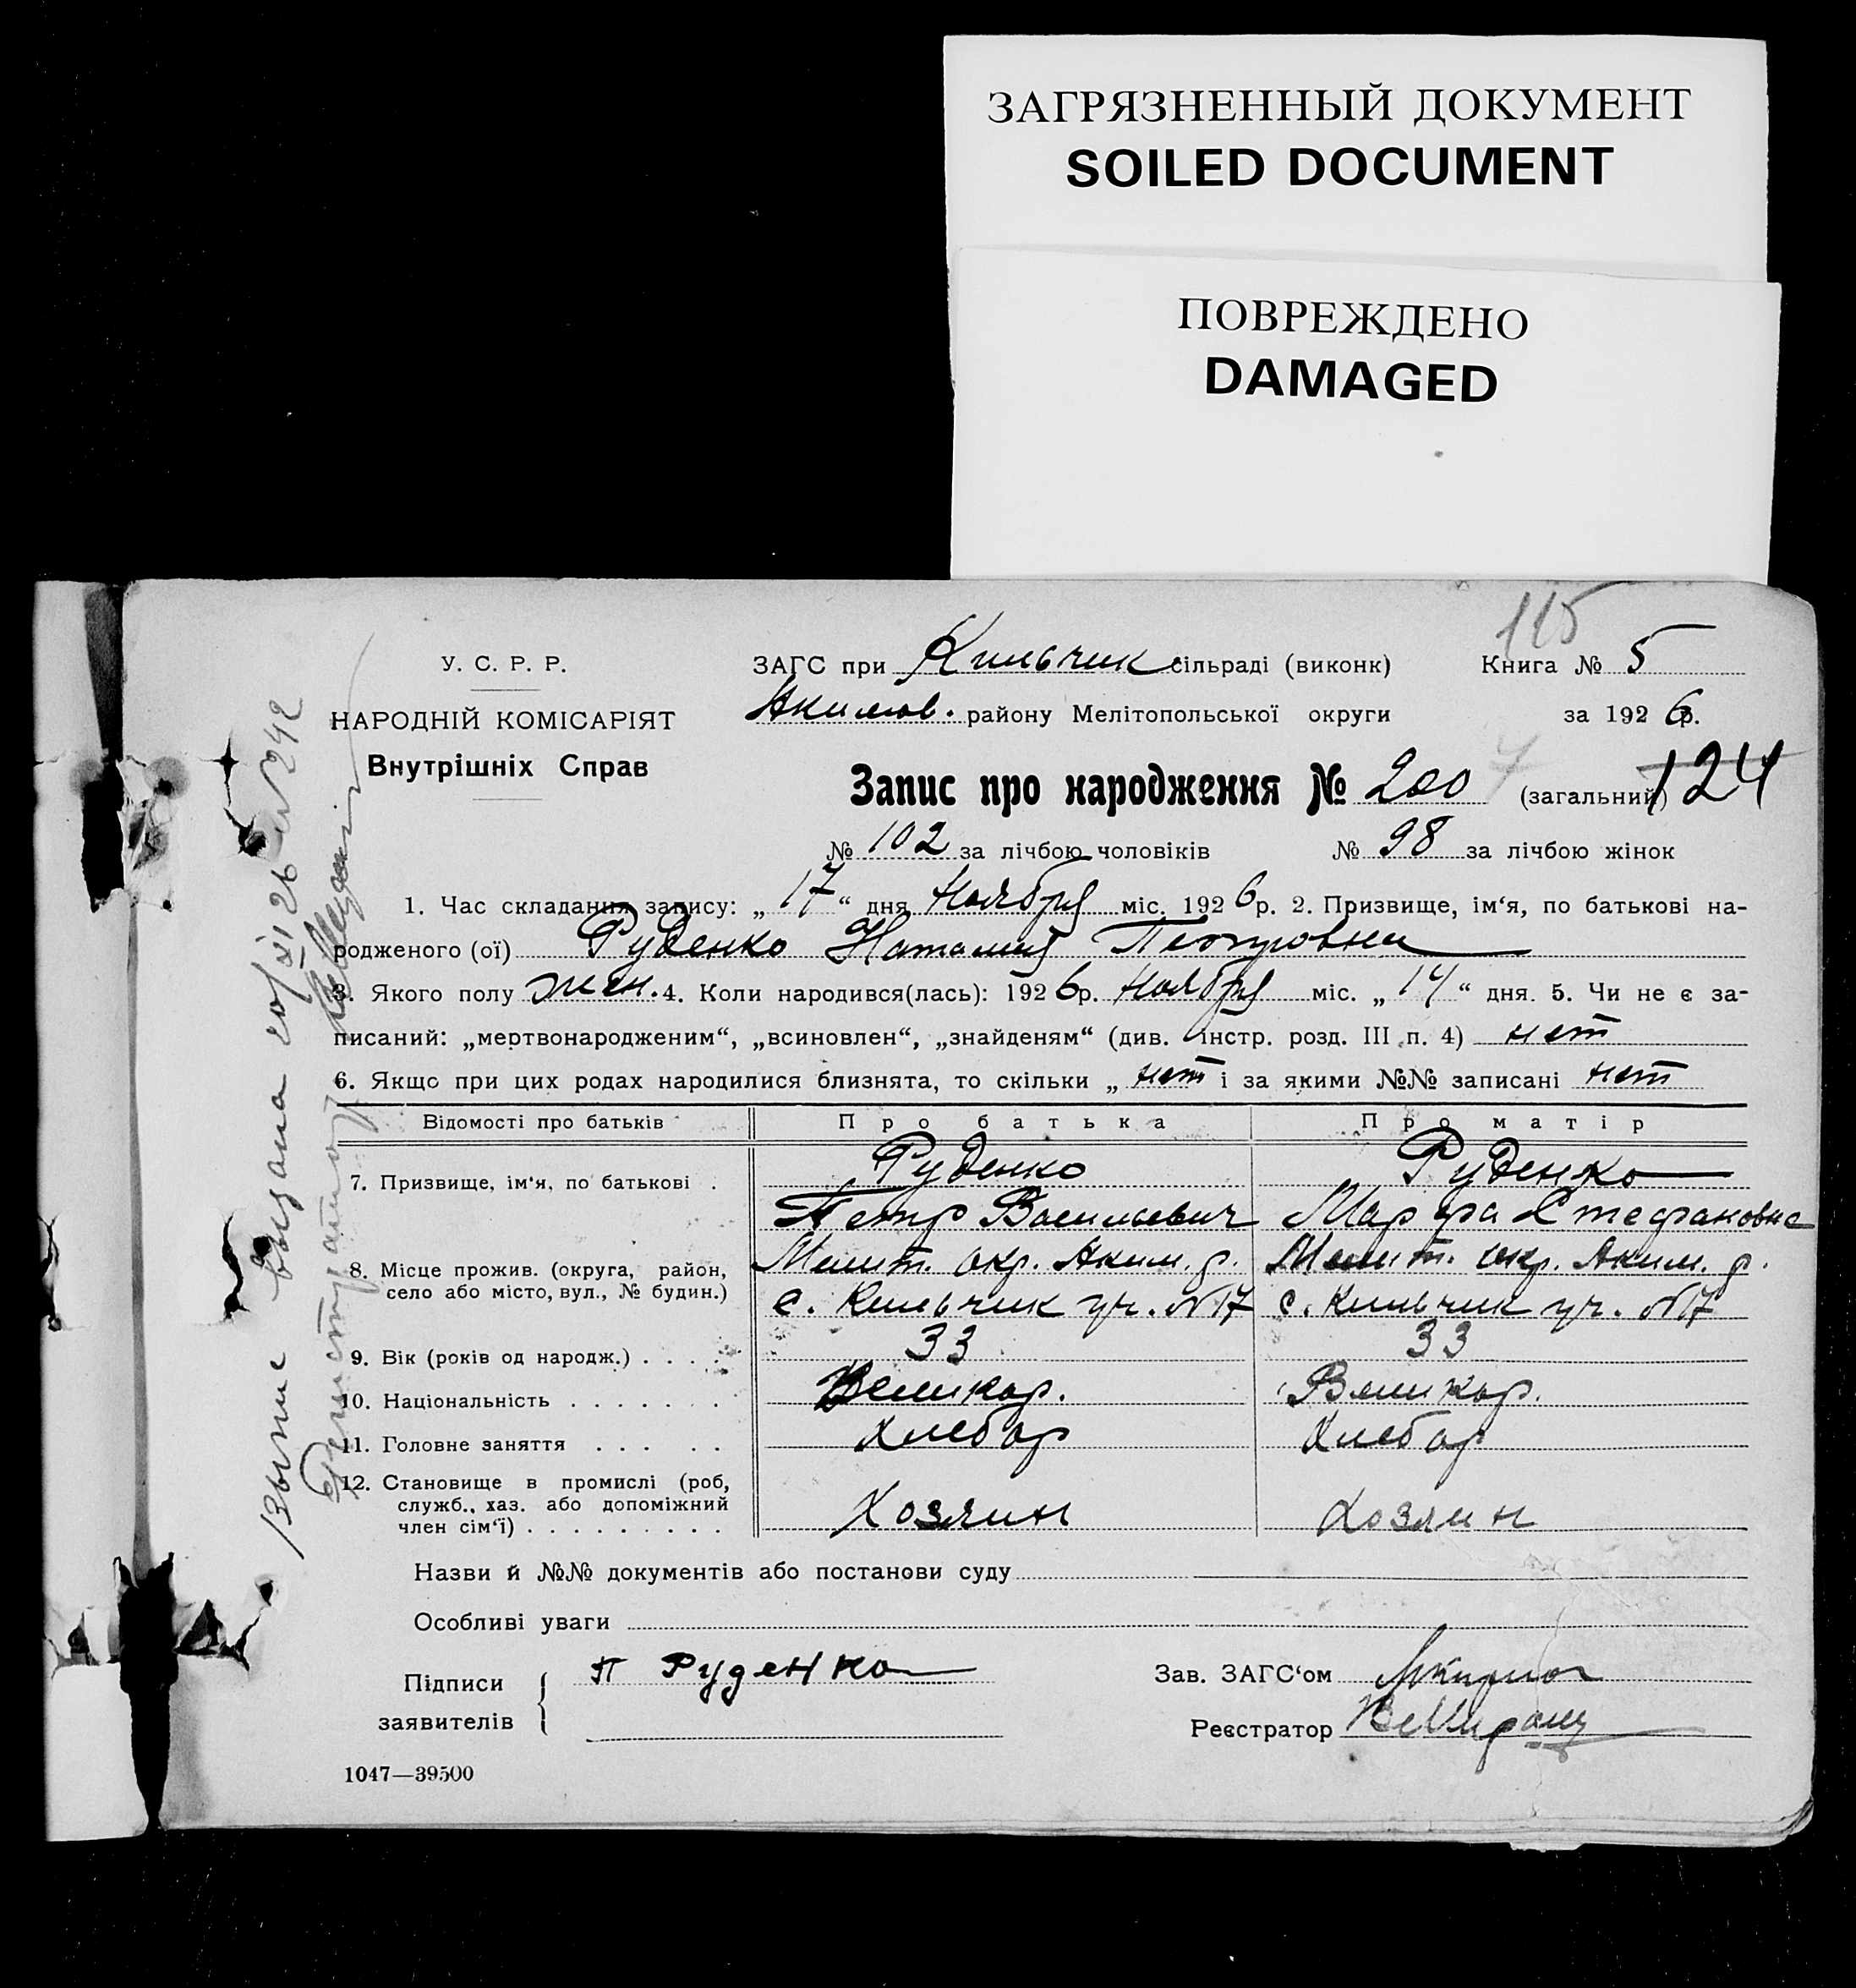 ЗАГРЯЗНЕННЫЙ ДОКУМЕНТ
SOILED DOCUMENT
ПОВРЕЖДЕНО
DAMAGED
115
У. С. Р. Р.
НАРОДНІЙ КОМІСАРІЯТ
Внутрішніх Справ
ЗАГС при Кильчик сільраді (виконк) Книга № 5
Аким​ов. району Мелітопольської округи за 1926 р.
Запис про народження № 200 (загальний) 124
№ 102 за лічбою чоловіків № 98 за лічбою жінок
1. Час складання запису: „17“ дня Ноября міс. 1926 р. 2. Призвище, ім‘я, по батькові на-
родженого (ої) Руденко Наталия Петровна
3. Якого полу жен. 4. Коли народився(лась): 1926 р. Ноября міс. „14“ дня. 5. Чи не є за-
писаний: „мертвонародженим“, „всиновлен“, „знайденям“ (див. Інстр. розд. III п. 4) нет
6. Якщо при цих родах народилися близнята, то скільки „ нет і за якими №№ записані нет
Відомості про батьків Про батька Про матір
7. Призвище, ім‘я, по батькові . Руденко Руденко
Петр Васильевич Марфа Стефановна
8. Місце прожив. (округа, район, Мелит. окр. Аким. р. Мелит. окр. Аким. р.
село або місто, вул., № будин.) с. Кильчик уч. №17 с. Кильчик уч. №17
9. Вік (років од народж.) . . . . 33 33
10. Національність . . . . . . . Великор. Великор.
11. Головне заняття . . . . . Хлебор Хлебор
12. Становище в промислі (роб,
служб., хаз. або допоміжний
член сім‘ї) . . . . . . . . . Хозяин Хозяин
Назви й №№ документів або постанови суду
Особливі уваги
Підписи
заявителів
П Руденко
Зав. ЗАГС‘ом
Реєстратор
1047—39500
выпис выдана 20/XI 26 №242
Регистратор